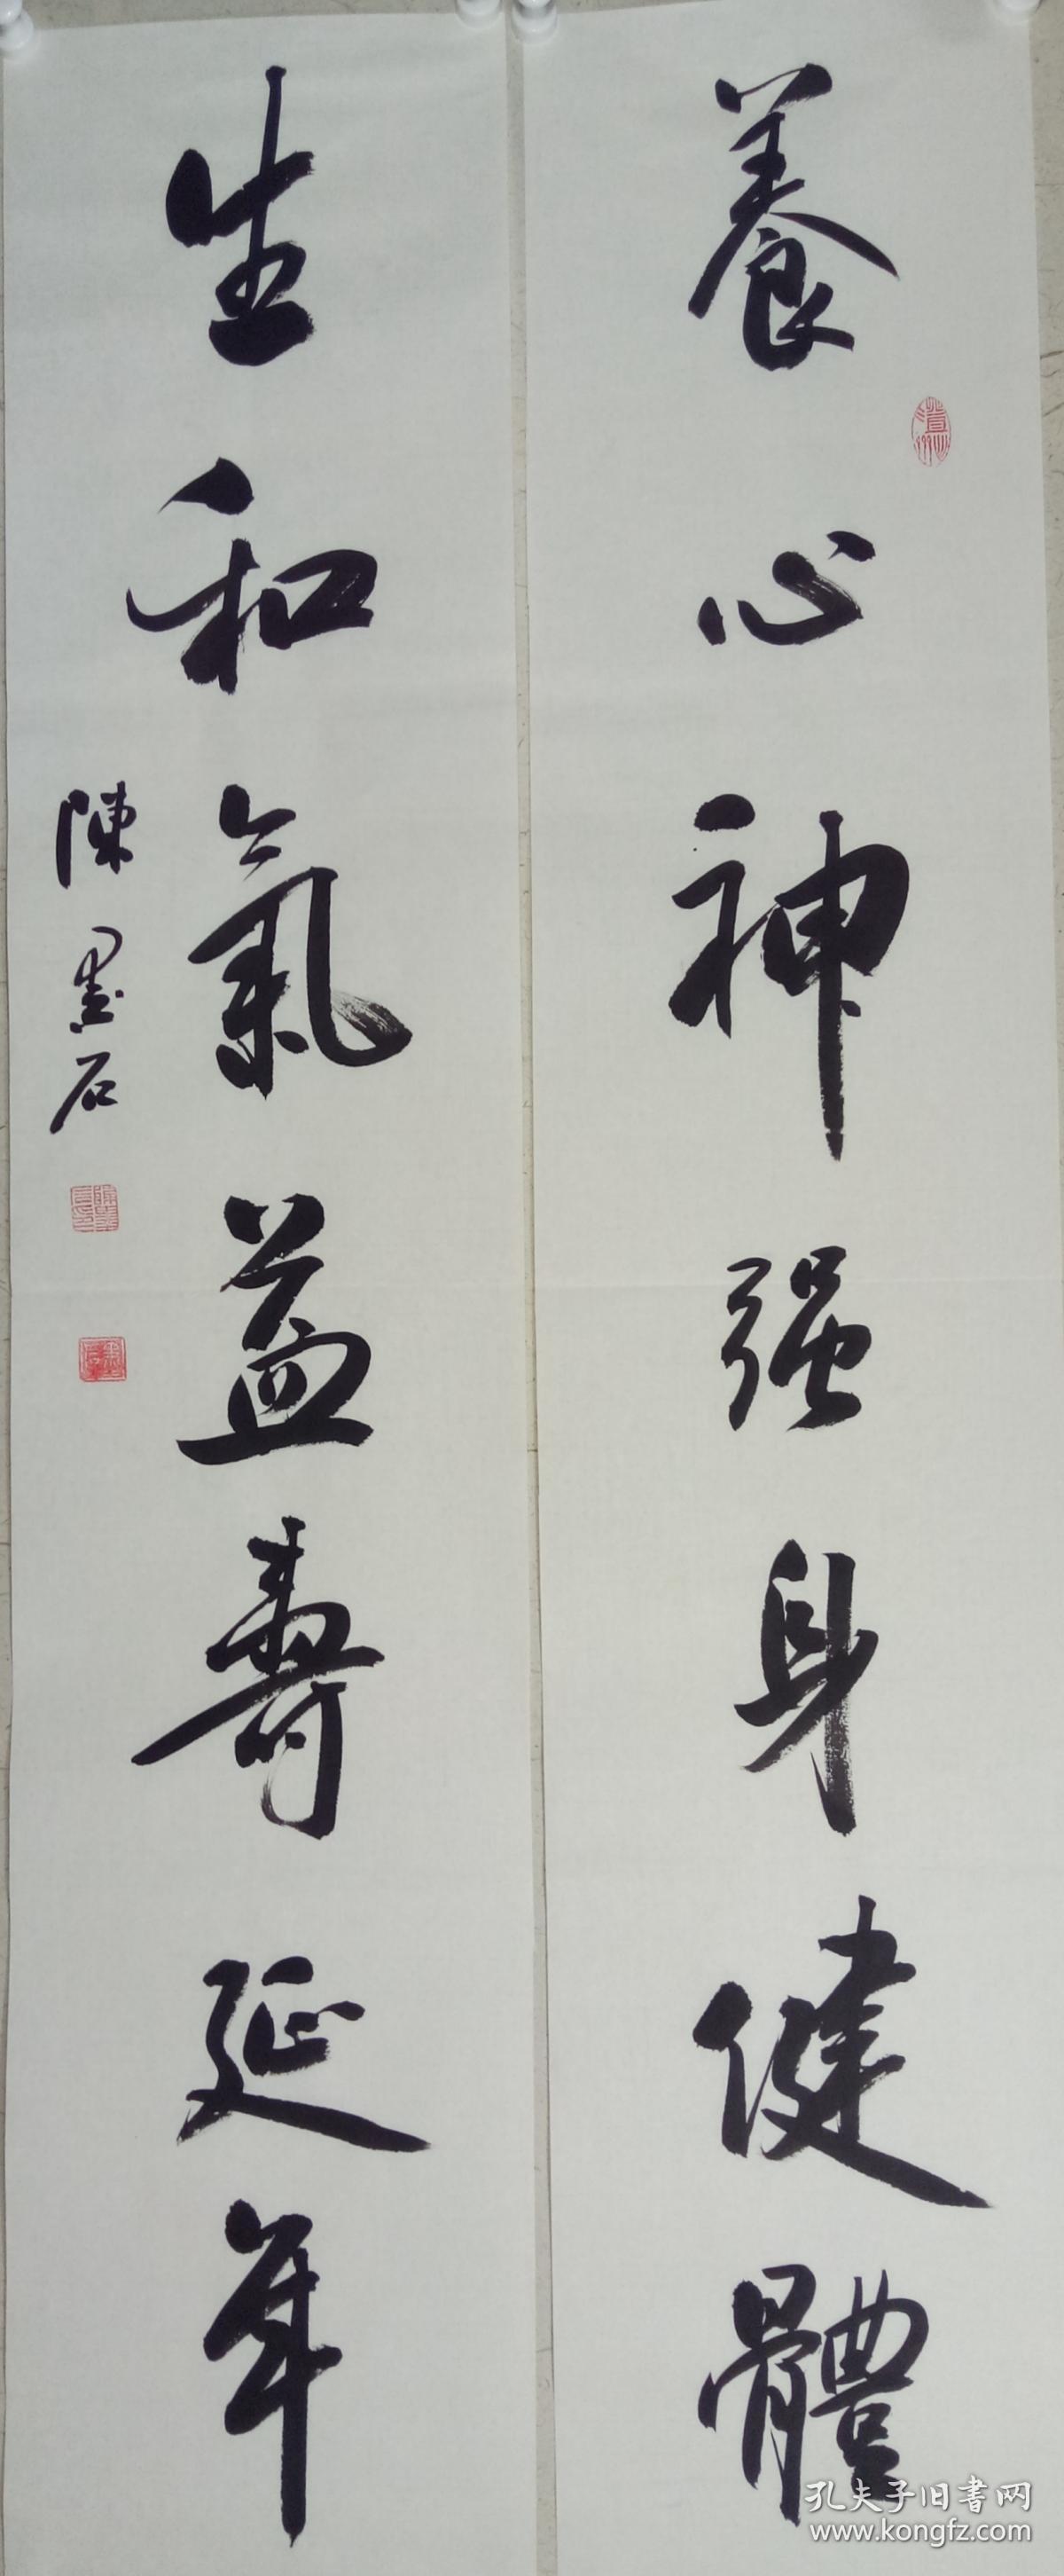 養心神强身健體
生和氣益壽延年
陳墨石
孔夫子旧书网
www.kongfz.com